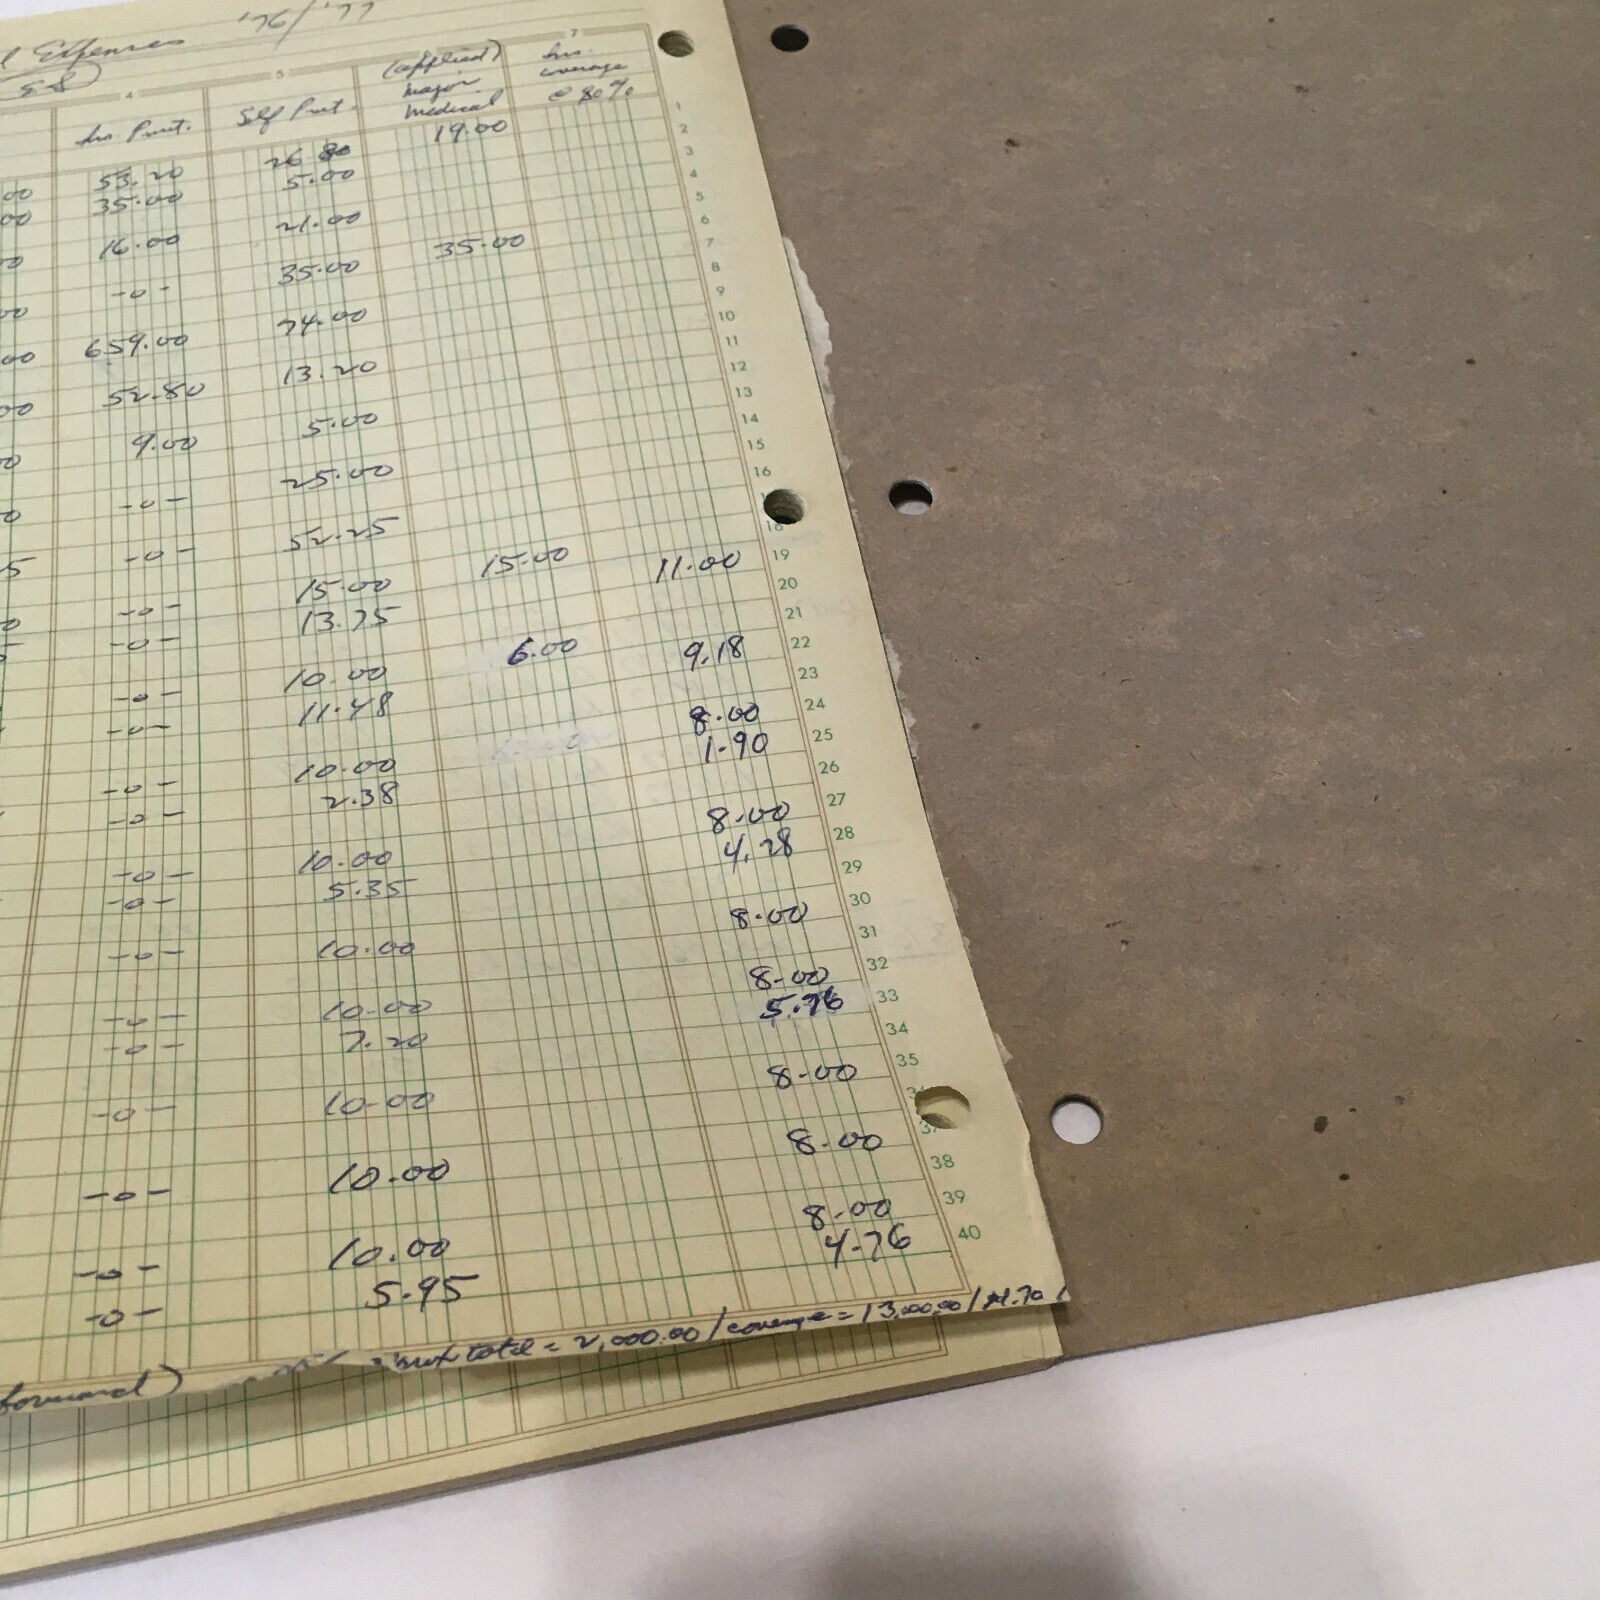 Expenses '76/'77
58
4 5 7
Ins. Pmt. Self Pmt. (applied) Major Medical Ins. coverage @ 80%
1
19.00 2
53.20 26.80 3
00 35.00 5.00 4
00 5
16.00 21.00 6
00 35.00 7
-0- 35.00 8
9
00 659.00 74.00 10
00 11
52.80 13.20 12
00 13
9.00 5.00 14
0 15
-0- 25.00 16
0
-0- 52.25 18
5 15.00 11.00 19
-0- 15.00 20
0 -0- 13.75 21
5 6.00 9.18 22
-0- 10.00 23
-0- 11.48 8.00 24
1.90 25
-0- 10.00 26
-0- 2.38 8.00 27
4.28 28
-0- 10.00 29
-0- 5.35 8.00 30
31
-0- 10.00 8.00 32
5.76 33
-0- 10.00 34
-0- 7.20 8.00 35
36
-0- 10.00 8.00 37
38
-0- 10.00 8.00 39
4.76 40
-0- 10.00
-0- 5.95
forward) sub total = 2,000.00 / coverage = 13,000.00 /